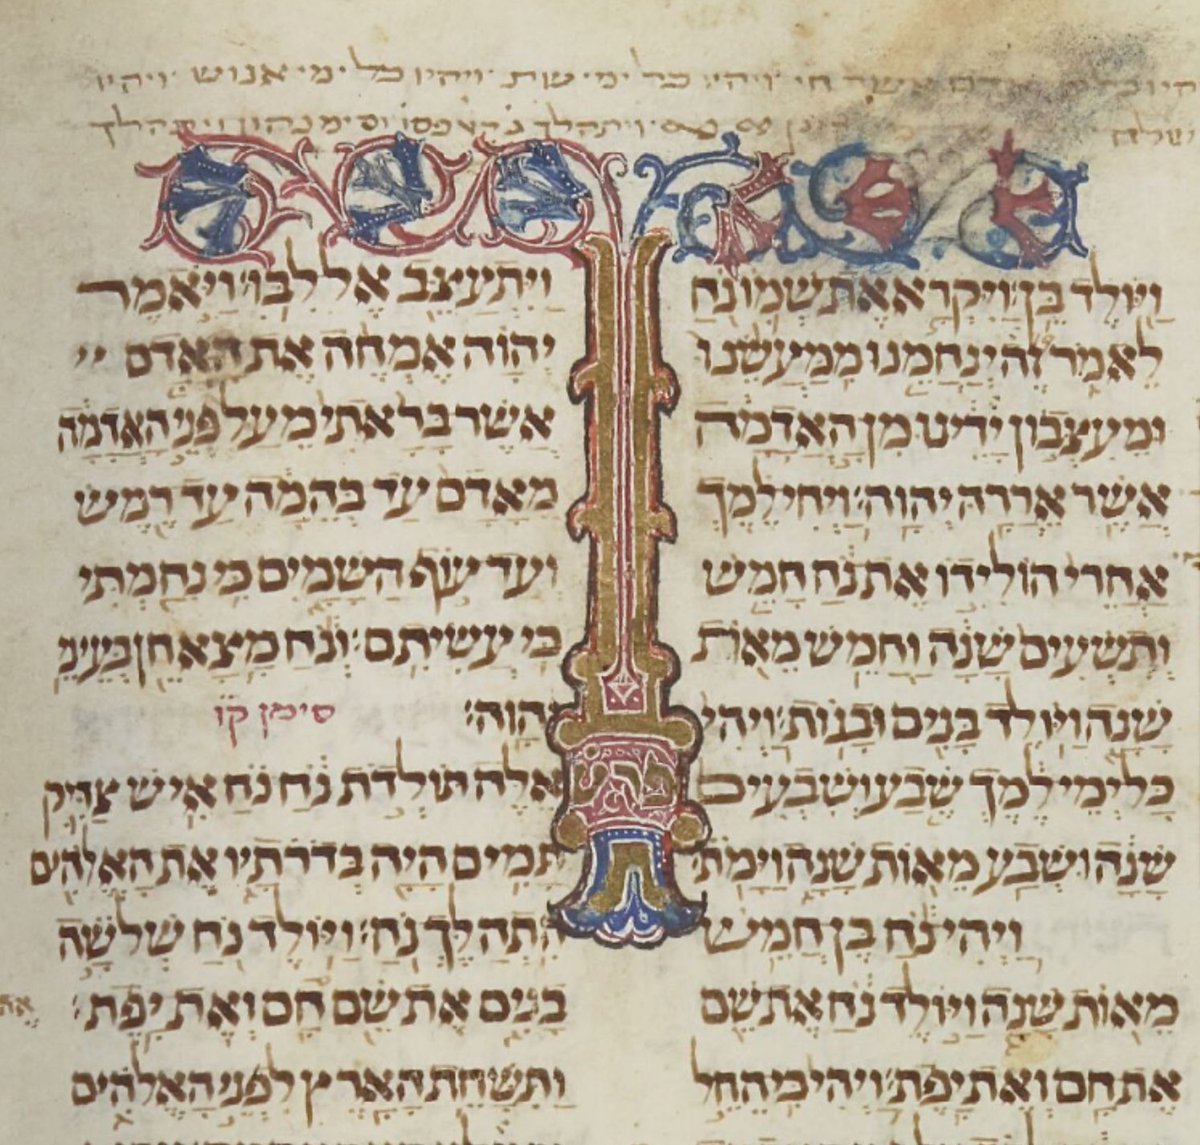 אשר חי ויהי כל ימי שת ויהיו כל ימי אנוש ויהיו
ויולד בן׃ ויקרא את שמו נח
לאמר זה ינחמנו ממעשנו
ומעצבון ידינו מן האדמה
אשר אררה יהוה׃ ויחי למך
אחרי הולידו את נח חמש
ותשעים שנה וחמש מאות
שנה ויולד בנים ובנות׃ ויהי
כל ימי למך שבע ושבעים
שנה ושבע מאות שנה וימת
ויהי נח בן חמש
מאות שנה ויולד נח את שם
את חם ואת יפת׃ ויהי כי החל
פרש
ויתעצב אל לבו׃ ויאמר
יהוה אמחה את האדם
אשר בראתי מעל פני האדמה
מאדם עד בהמה עד רמש
ועד עוף השמים כי נחמתי
כי עשיתם׃ ונח מצא חן בעיני
יהוה׃ סימן קו
אלה תולדת נח נח איש צדיק
תמים היה בדרתיו את האלהים
התהלך נח׃ ויולד נח שלשה
בנים את שם חם ואת יפת׃
ותשחת הארץ לפני האלהים